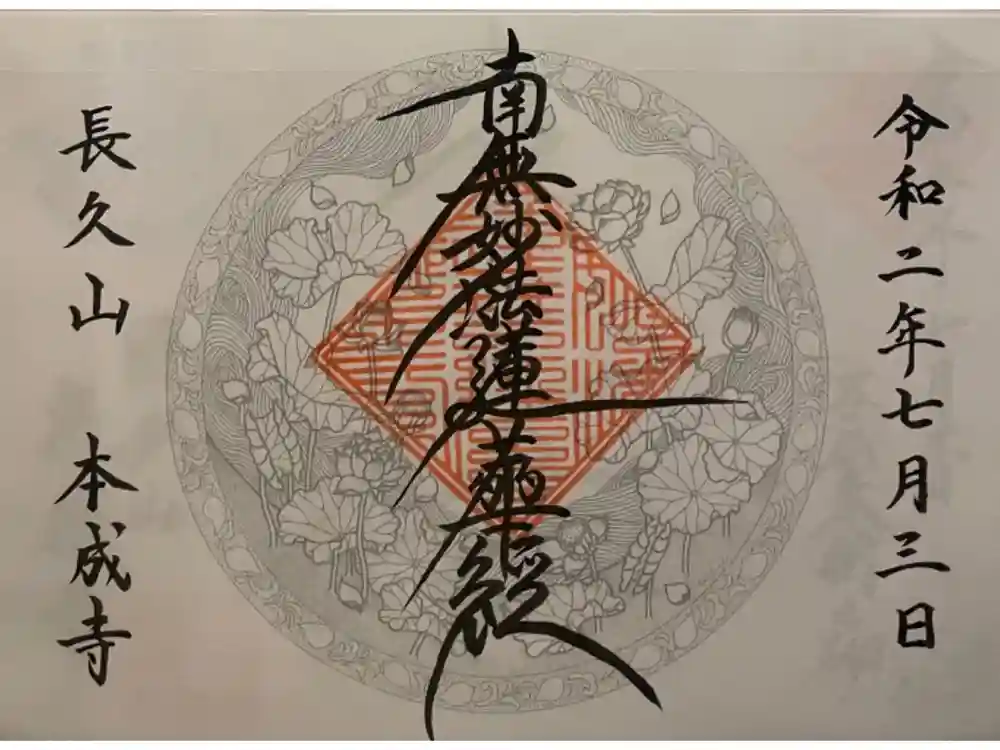 令和二年七月三日
南無妙法蓮華経
長久山 本成寺